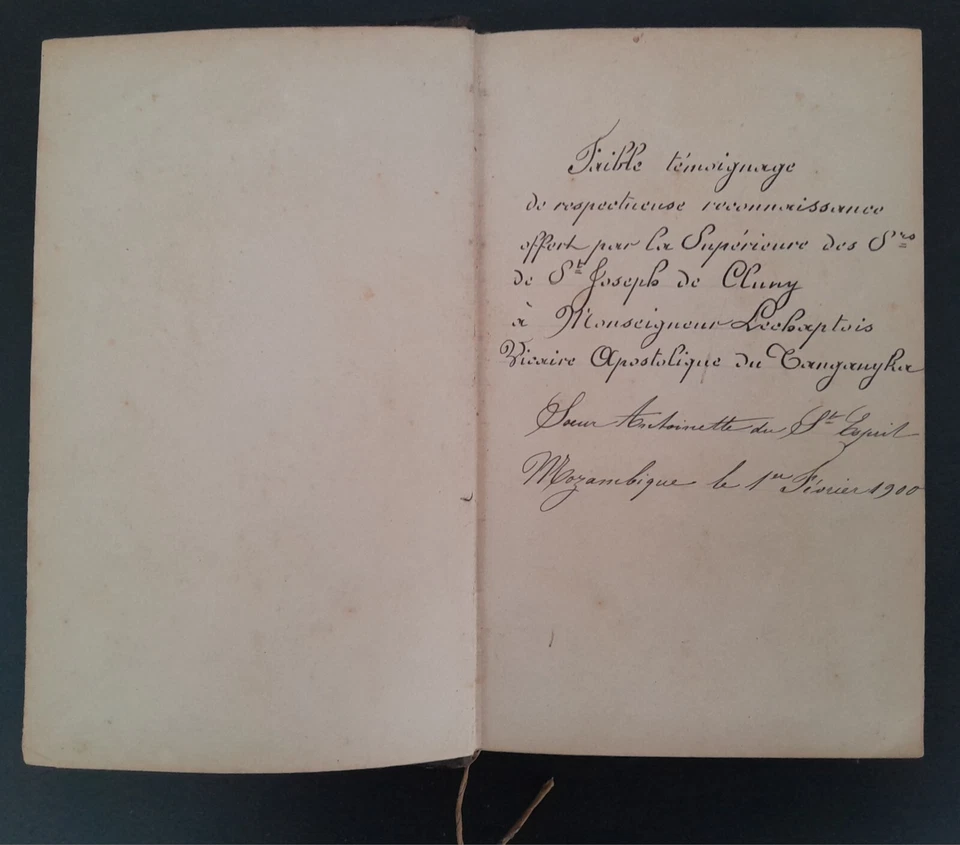 Faible témoignage
de respectueuse reconnaissance
offert par la Supérieure des Srs
de St Joseph de Cluny
à Monseigneur Lechaptois
Vicaire Apostolique du Tanganyka
Sœur Antoinette du St Esprit
Mozambique le 1er Février 1900